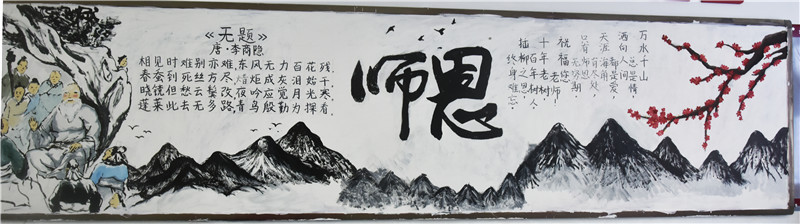 《无题》
唐·李商隐
相见时难别亦难东风无力百花残
春蚕到死丝方尽蜡炬成灰泪始干
晓镜但愁云鬓改夜吟应觉月光寒
蓬莱此去无多路青鸟殷勤为探看
师恩
万水千山
总是情,
洒向人间
都是爱,
天涯海角
有尽处,
只有师恩
无穷期.
祝福您
老师
百年树人,
插柳之恩,
终身难忘.